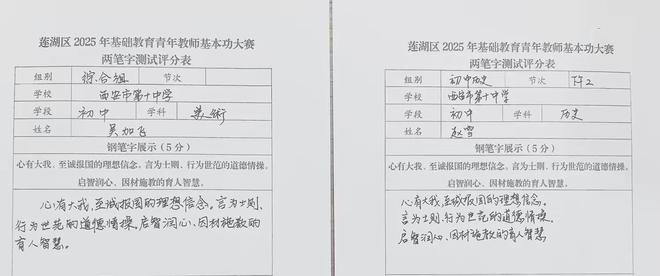 莲湖区 2025 年基础教育青年教师基本功大赛
两笔字测试评分表
组别 综合组 节次
学校 西安市第十中学
学段 初中 学科 美术
姓名 吴加飞
钢笔字展示（5 分）
心有大我、至诚报国的理想信念。言为士则、行为世范的道德情操。
启智润心、因材施教的育人智慧。
心有大我、至诚报国的理想信念。言为士则、
行为世范的道德情操。启智润心、因材施教的
育人智慧。
莲湖区 2025 年基础教育青年教师基本功大赛
两笔字测试评分表
组别 初中历史 节次 下午2
学校 西安市第十中学
学段 初中 学科 历史
姓名 赵雪
钢笔字展示（5 分）
心有大我、至诚报国的理想信念。言为士则、行为世范的道德情操。
启智润心、因材施教的育人智慧。
心有大我、至诚报国的理想信念。
言为士则、行为世范的道德情操。
启智润心、因材施教的育人智慧